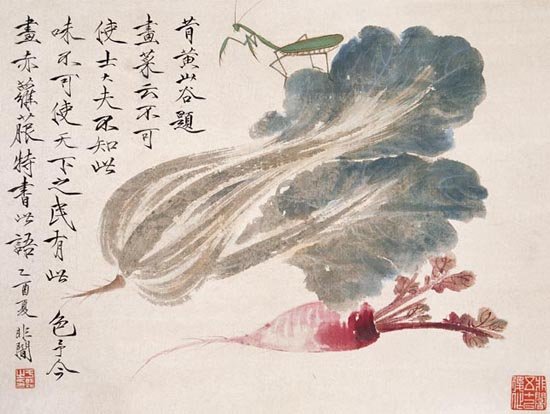 昔黄山谷題
畫菜云不可
使士大夫不知此
味不可使天下之民有此色予今
畫亦蘿菔特書此語 乙酉夏 非闇